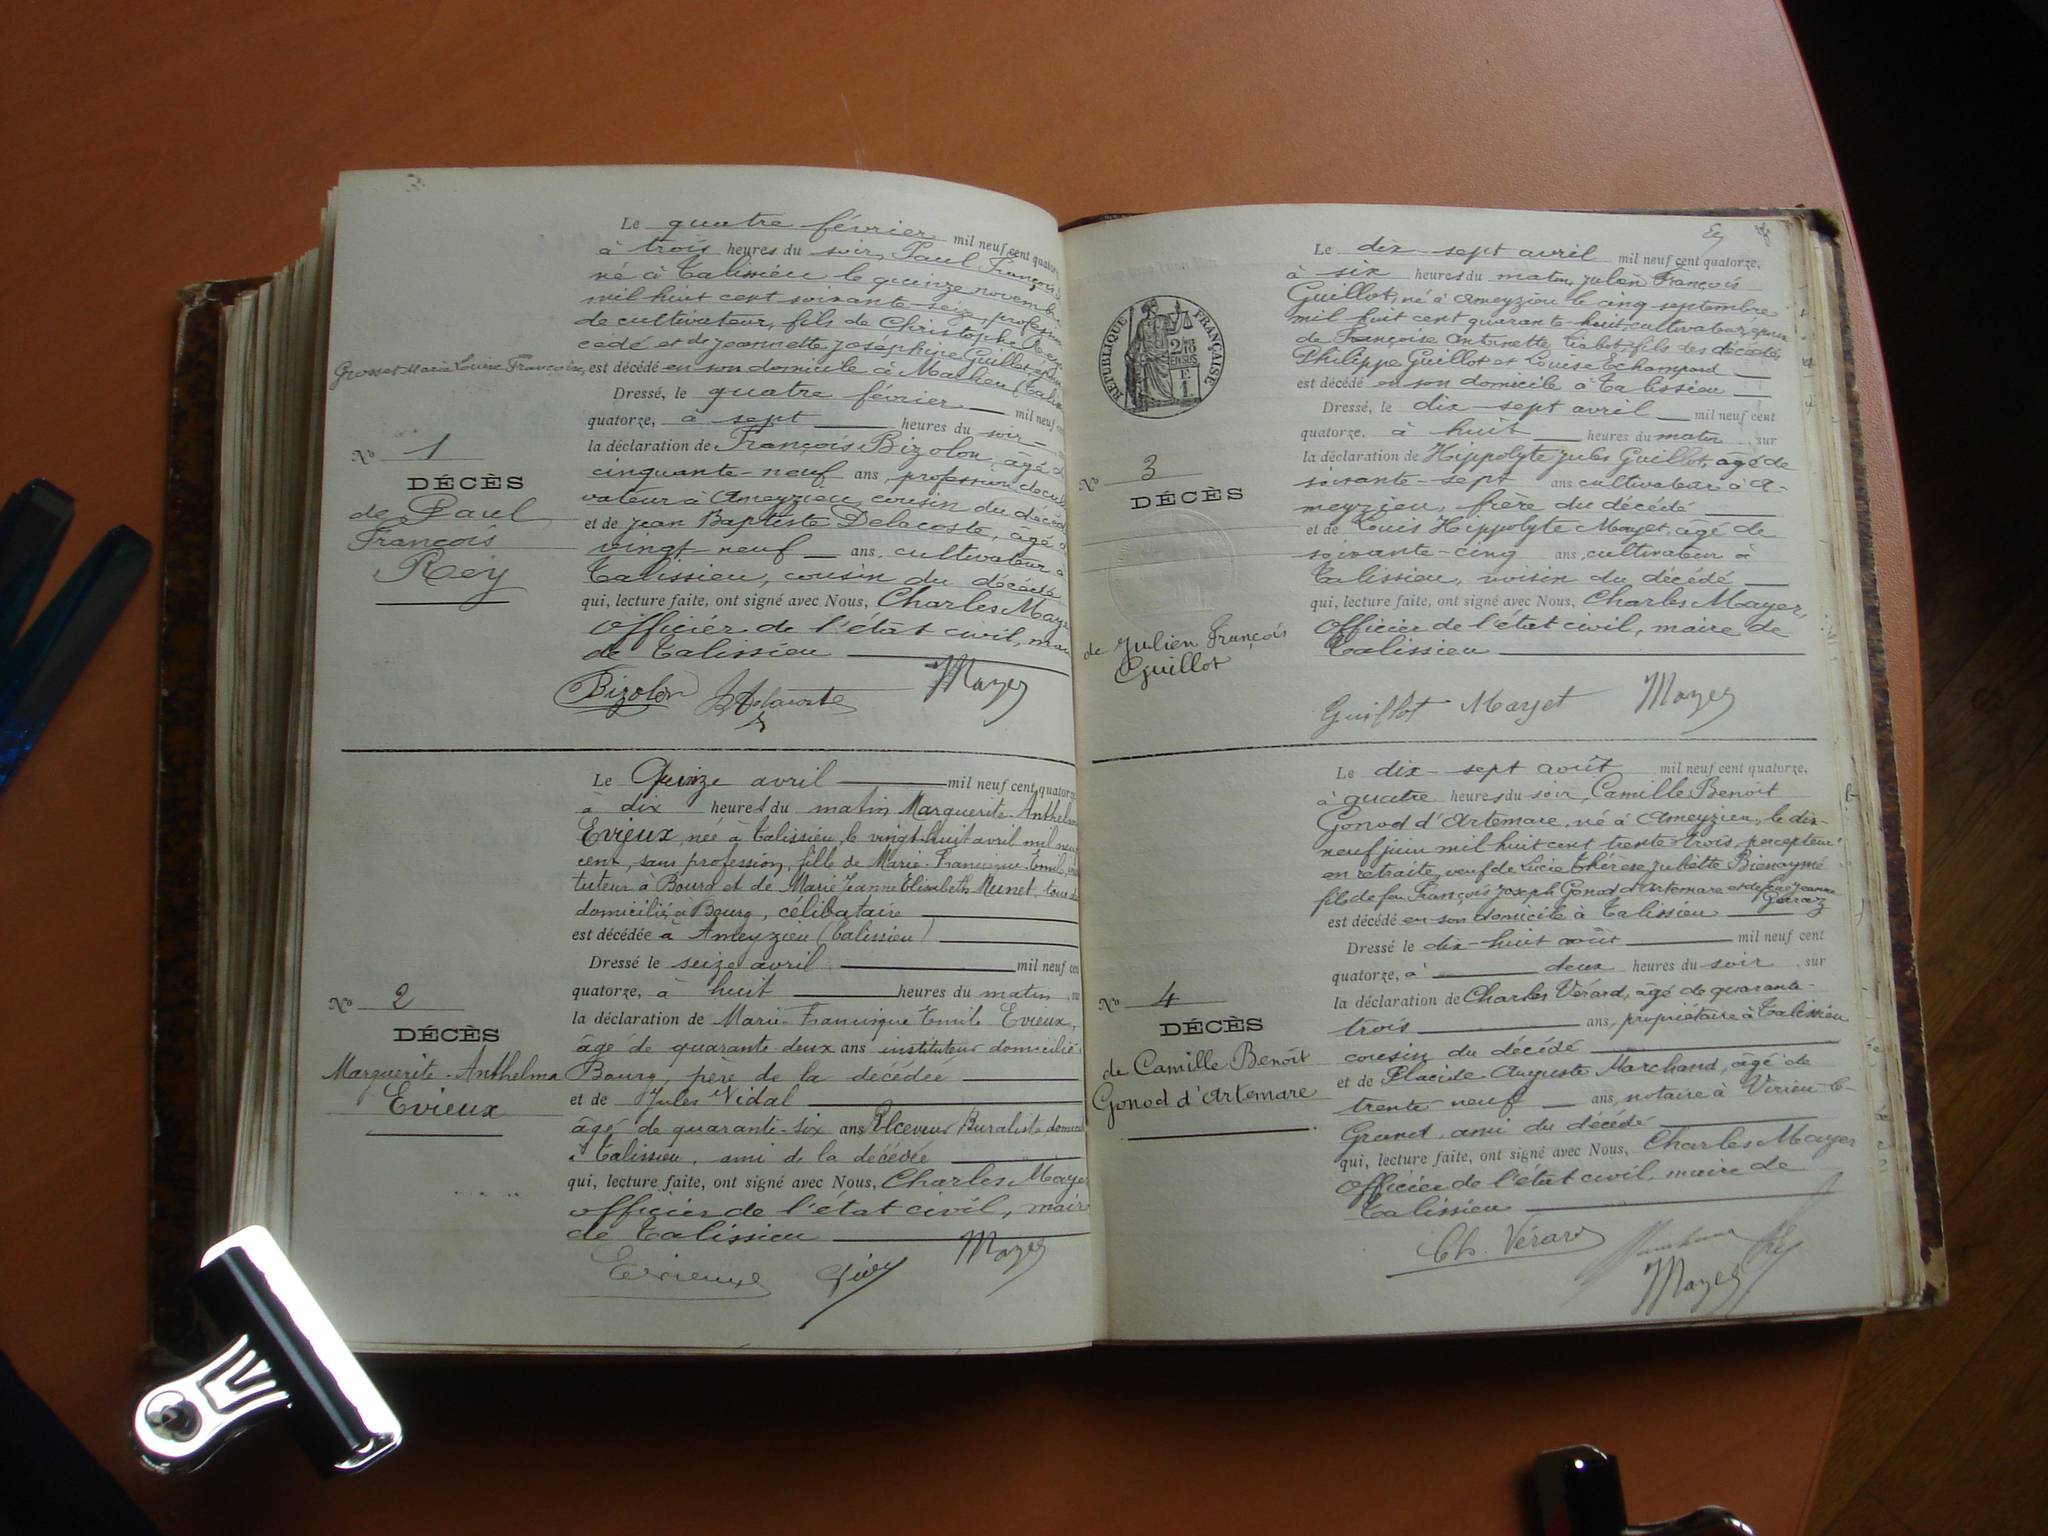 Le quatre février mil neuf cent quatorze
à trois heures du soir, Paul François
né à Talissieu le quinze novembre
mil huit cent soixante-seize, profession
de cultivateur, fils de Christophe Rey
cédé et de Jeannette Joséphine Guillot
Grosset Marie Louise Françoise, est décédé en son domicile à Mathieu
Dressé, le quatre février mil neuf cent
quatorze, à sept heures du soir
la déclaration de François Bizolon, âgé de
cinquante-neuf ans, profession de culti
vateur à Ameyzieu, cousin du décédé
et de Jean Baptiste Delacoste, âgé de
vingt neuf ans, cultivateur à
Talissieu, cousin du décédé
qui, lecture faite, ont signé avec Nous, Charles Mayer
officier de l'état civil, maire
de Talissieu
Bizolon Delacoste Mayer
No 1
DÉCÈS
de Paul
François
Rey
Le Quinze avril mil neuf cent quatorze
à dix heures du matin Marguerite-Anthelma
Evieux, née à Talissieu, le vingt-huit avril mil neuf
cent, sans profession, fille de Marie-Francisque-Emile, insti
tuteur à Bourg et de Marie Jeanne Elisabeth Munet, tous deux
domiciliés à Bourg, célibataire
est décédée à Ameyzieu (Talissieu)
Dressé le seize avril mil neuf cent
quatorze, à huit heures du matin
la déclaration de Marie-Francisque Emile Evieux,
âgé de quarante deux ans instituteur domicilié
Bourg, père de la décédée
et de Jules Vidal
âgé de quarante-six ans Receveur Buraliste, domicilié
à Talissieu, ami de la décédée
qui, lecture faite, ont signé avec Nous, Charles Mayer
officier de l'état civil, maire
de Talissieu
Evieux Mayer
No 2
DÉCÈS
Marguerite-Anthelma
Evieux
RÉPUBLIQUE FRANÇAISE
Le dix-sept avril mil neuf cent quatorze,
à six heures du matin, Julien François
Guillot, né à Ameyzieu le cinq septembre
mil huit cent quarante-huit, cultivateur, époux
de Françoise Antoinette fils des décédés
Philippe Guillot et Louise Echampard
est décédé en son domicile à Talissieu
Dressé, le dix-sept avril mil neuf cent
quatorze, à huit heures du matin, sur
la déclaration de Hippolyte Jules Guillot, âgé de
soixante-sept ans cultivateur à A-
meyzieu, frère du décédé
et de Louis Hippolyte Mayet, âgé de
soixante-cinq ans, cultivateur à
Talissieu, voisin du décédé
qui, lecture faite, ont signé avec Nous, Charles Mayer,
officier de l'état civil, maire de
Talissieu
Guillot Mayet Mayer
No 3
DÉCÈS
de Julien François
Guillot
Le dix-sept août mil neuf cent quatorze,
à quatre heures du soir, Camille Benoît
Gonod d'Artemare, né à Ameyzieu, le dix-
neuf juin mil huit cent trente-trois, percepteur
en retraite, veuf de Lucie Thérèse Juliette Bienaymé
fils de feu François Joseph Gonod d'Artemare et de feue Jeanne
est décédé en son domicile à Talissieu
Dressé le dix-huit août mil neuf cent
quatorze, à deux heures du soir, sur
la déclaration de Charles Vérard, âgé de quarante-
trois ans, propriétaire à Talissieu
cousin du décédé
et de Placide Auguste Marchand, âgé de
trente-neuf ans, notaire à Virieu-le-
Grand, ami du décédé
qui, lecture faite, ont signé avec Nous, Charles Mayer
officier de l'état civil, maire de
Talissieu
Ch. Vérard
Mayer
No 4
DÉCÈS
de Camille Benoît
Gonod d'Artemare